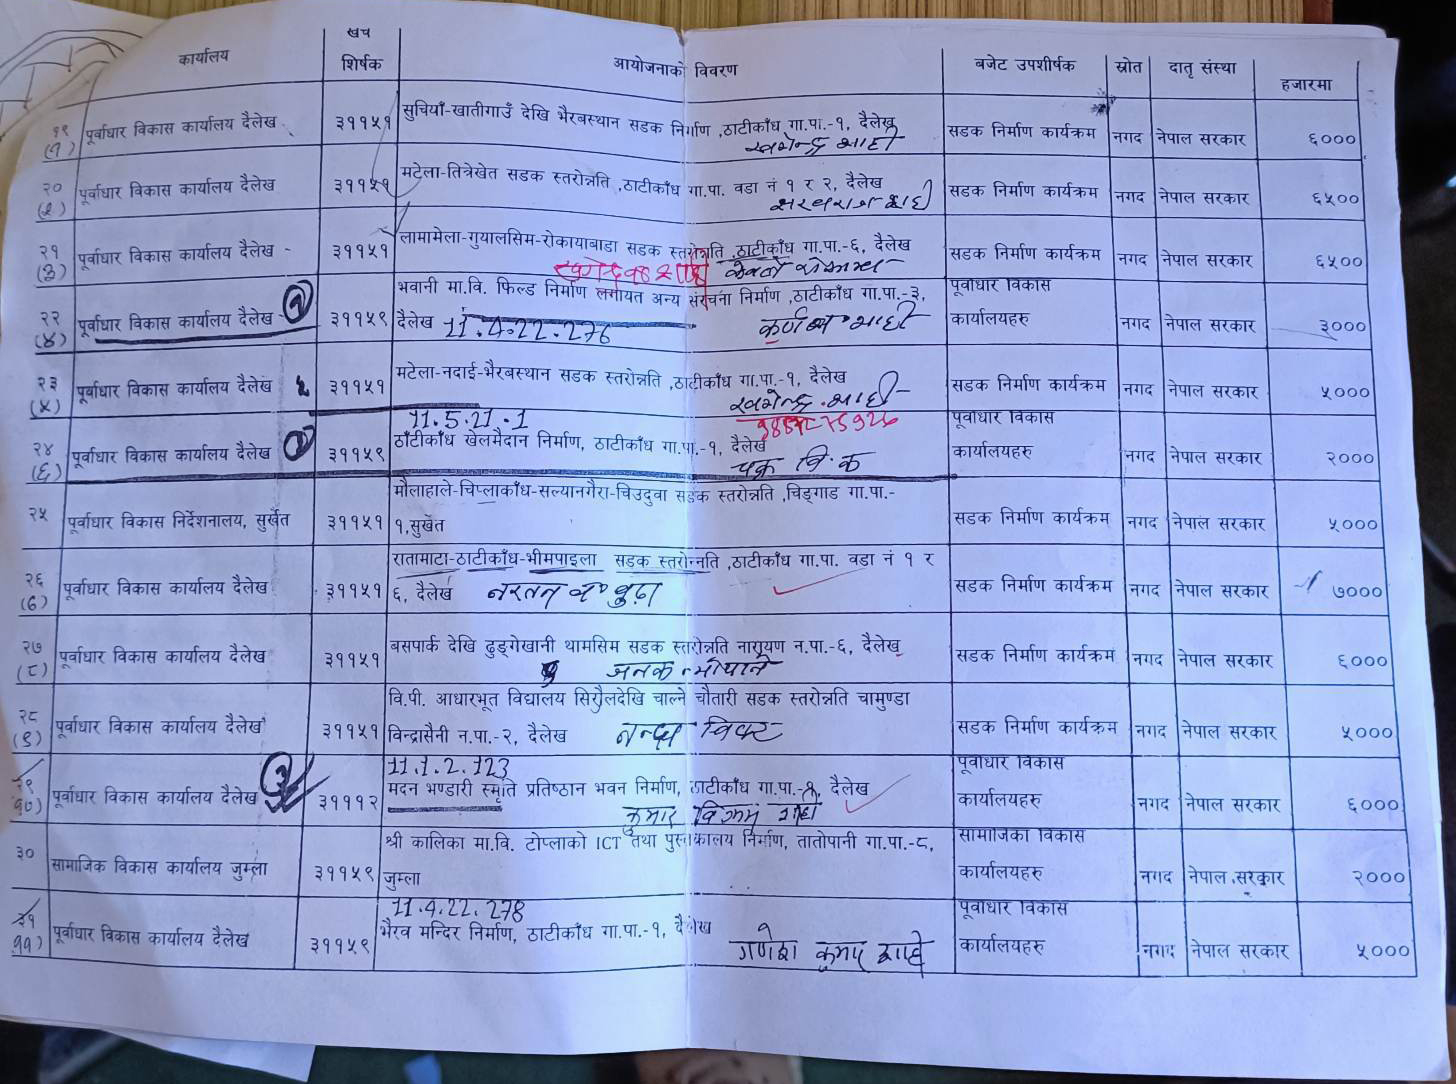 कार्यालय खर्च शिर्षक आयोजनाको विवरण बजेट उपशीर्षक स्रोत दातृ संस्था हजारमा
१९ (१) पूर्वाधार विकास कार्यालय दैलेख ३११५१ सुचियाँ-खातीगाउँ देखि भैरबस्थान सडक निर्माण ,ठाटीकाँध गा.पा.-१, दैलेख सडक निर्माण कार्यक्रम नगद नेपाल सरकार ६०००
खगेन्द्र शाही
२० (२) पूर्वाधार विकास कार्यालय दैलेख ३११५१ मटेला-तित्रेखेत सडक स्तरोन्नति ,ठाटीकाँध गा.पा. वडा नं १ र २, दैलेख सडक निर्माण कार्यक्रम नगद नेपाल सरकार ६५००
२१ (३) पूर्वाधार विकास कार्यालय दैलेख ३११५१ लामामेला-गुयालसिम-रोकायाबाडा सडक स्तरोन्नति ,ठाटीकाँध गा.पा.-६, दैलेख सडक निर्माण कार्यक्रम नगद नेपाल सरकार ६५००
२२ (४) पूर्वाधार विकास कार्यालय दैलेख १ ३११५९ भवानी मा.वि. फिल्ड निर्माण लगायत अन्य संरचना निर्माण ,ठाटीकाँध गा.पा.-३, पूर्वाधार विकास
दैलेख 11.4.22.276 कार्यालयहरु नगद नेपाल सरकार ३०००
२३ (५) पूर्वाधार विकास कार्यालय दैलेख ३११५१ मटेला-नदाई-भैरबस्थान सडक स्तरोन्नति ,ठाटीकाँध गा.पा.-१, दैलेख सडक निर्माण कार्यक्रम नगद नेपाल सरकार ५०००
खगेन्द्र शाही
11.5.21.1
२४ (६) पूर्वाधार विकास कार्यालय दैलेख ३११५९ ठाँटीकाँध खेलमैदान निर्माण, ठाटीकाँध गा.पा.-१, दैलेख पूर्वाधार विकास
कार्यालयहरु नगद नेपाल सरकार २०००
चक्र वि.क
२५ पूर्वाधार विकास निर्देशनालय, सुर्खेत ३११५१ मौलाहाले-चिप्लाकाँध-सल्यानगैरा-चिउदुवा सडक स्तरोन्नति ,चिङ्गाड गा.पा.-
१,सुर्खेत सडक निर्माण कार्यक्रम नगद नेपाल सरकार ५०००
२६ (७) पूर्वाधार विकास कार्यालय दैलेख ३११५१ रातामाटा-ठाटीकाँध-भीमपाइला सडक स्तरोन्नति ,ठाटीकाँध गा.पा. वडा नं १ र
६, दैलेख सडक निर्माण कार्यक्रम नगद नेपाल सरकार ७०००
२७ (८) पूर्वाधार विकास कार्यालय दैलेख ३११५१ बसपार्क देखि ढुङ्गेखानी थामसिम सडक स्तरोन्नति नारायण न.पा.-६, दैलेख सडक निर्माण कार्यक्रम नगद नेपाल सरकार ६०००
जनक
२८ (९) पूर्वाधार विकास कार्यालय दैलेख ३११५१ वि.पी. आधारभूत विद्यालय सिरौलदेखि चाल्ने चौतारी सडक स्तरोन्नति चामुण्डा
विन्द्रासैनी न.पा.-२, दैलेख सडक निर्माण कार्यक्रम नगद नेपाल सरकार ५०००
11.1.2.123
२९ १०) पूर्वाधार विकास कार्यालय दैलेख ३१११२ मदन भण्डारी स्मृति प्रतिष्ठान भवन निर्माण, ठाटीकाँध गा.पा.-१, दैलेख पूर्वाधार विकास
कार्यालयहरु नगद नेपाल सरकार ६०००
कुमार विक्रम शाही
३० सामाजिक विकास कार्यालय जुम्ला ३११५९ श्री कालिका मा.वि. टोप्लाको ICT तथा पुस्तकालय निर्माण, तातोपानी गा.पा.-८, सामाजिका विकास
जुम्ला कार्यालयहरु नगद नेपाल सरकार २०००
11.4.22.278
३१ ११) पूर्वाधार विकास कार्यालय दैलेख ३११५९ भैरव मन्दिर निर्माण, ठाटीकाँध गा.पा.-१, दैलेख पूर्वाधार विकास
कार्यालयहरु नगद नेपाल सरकार ५०००
गणेश कुमार शाही